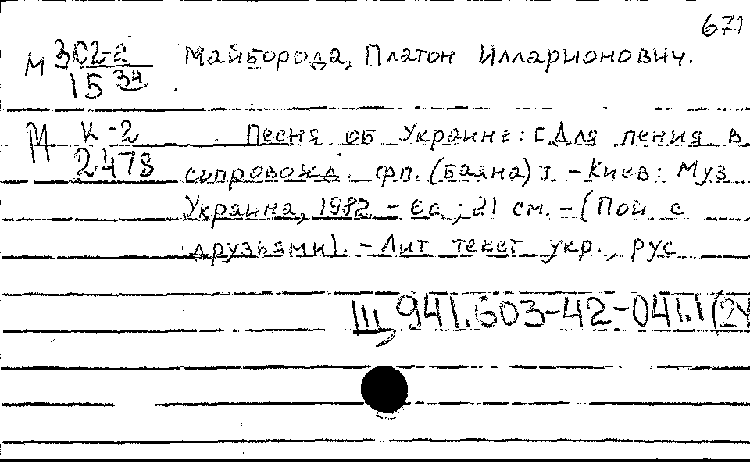 671
М З02-2 Майборода, Платон Илларионович.
15 34
М К-2 Песня об Украине: [Для пения в
2478 сопровожд. фп. (баяна)]. - Киев: Муз
Украина, 1982 - 6с.; 21 см. - (Пой с
друзьями). - Лит текст укр., рус
Ш, 941.603-42-041.1(2У